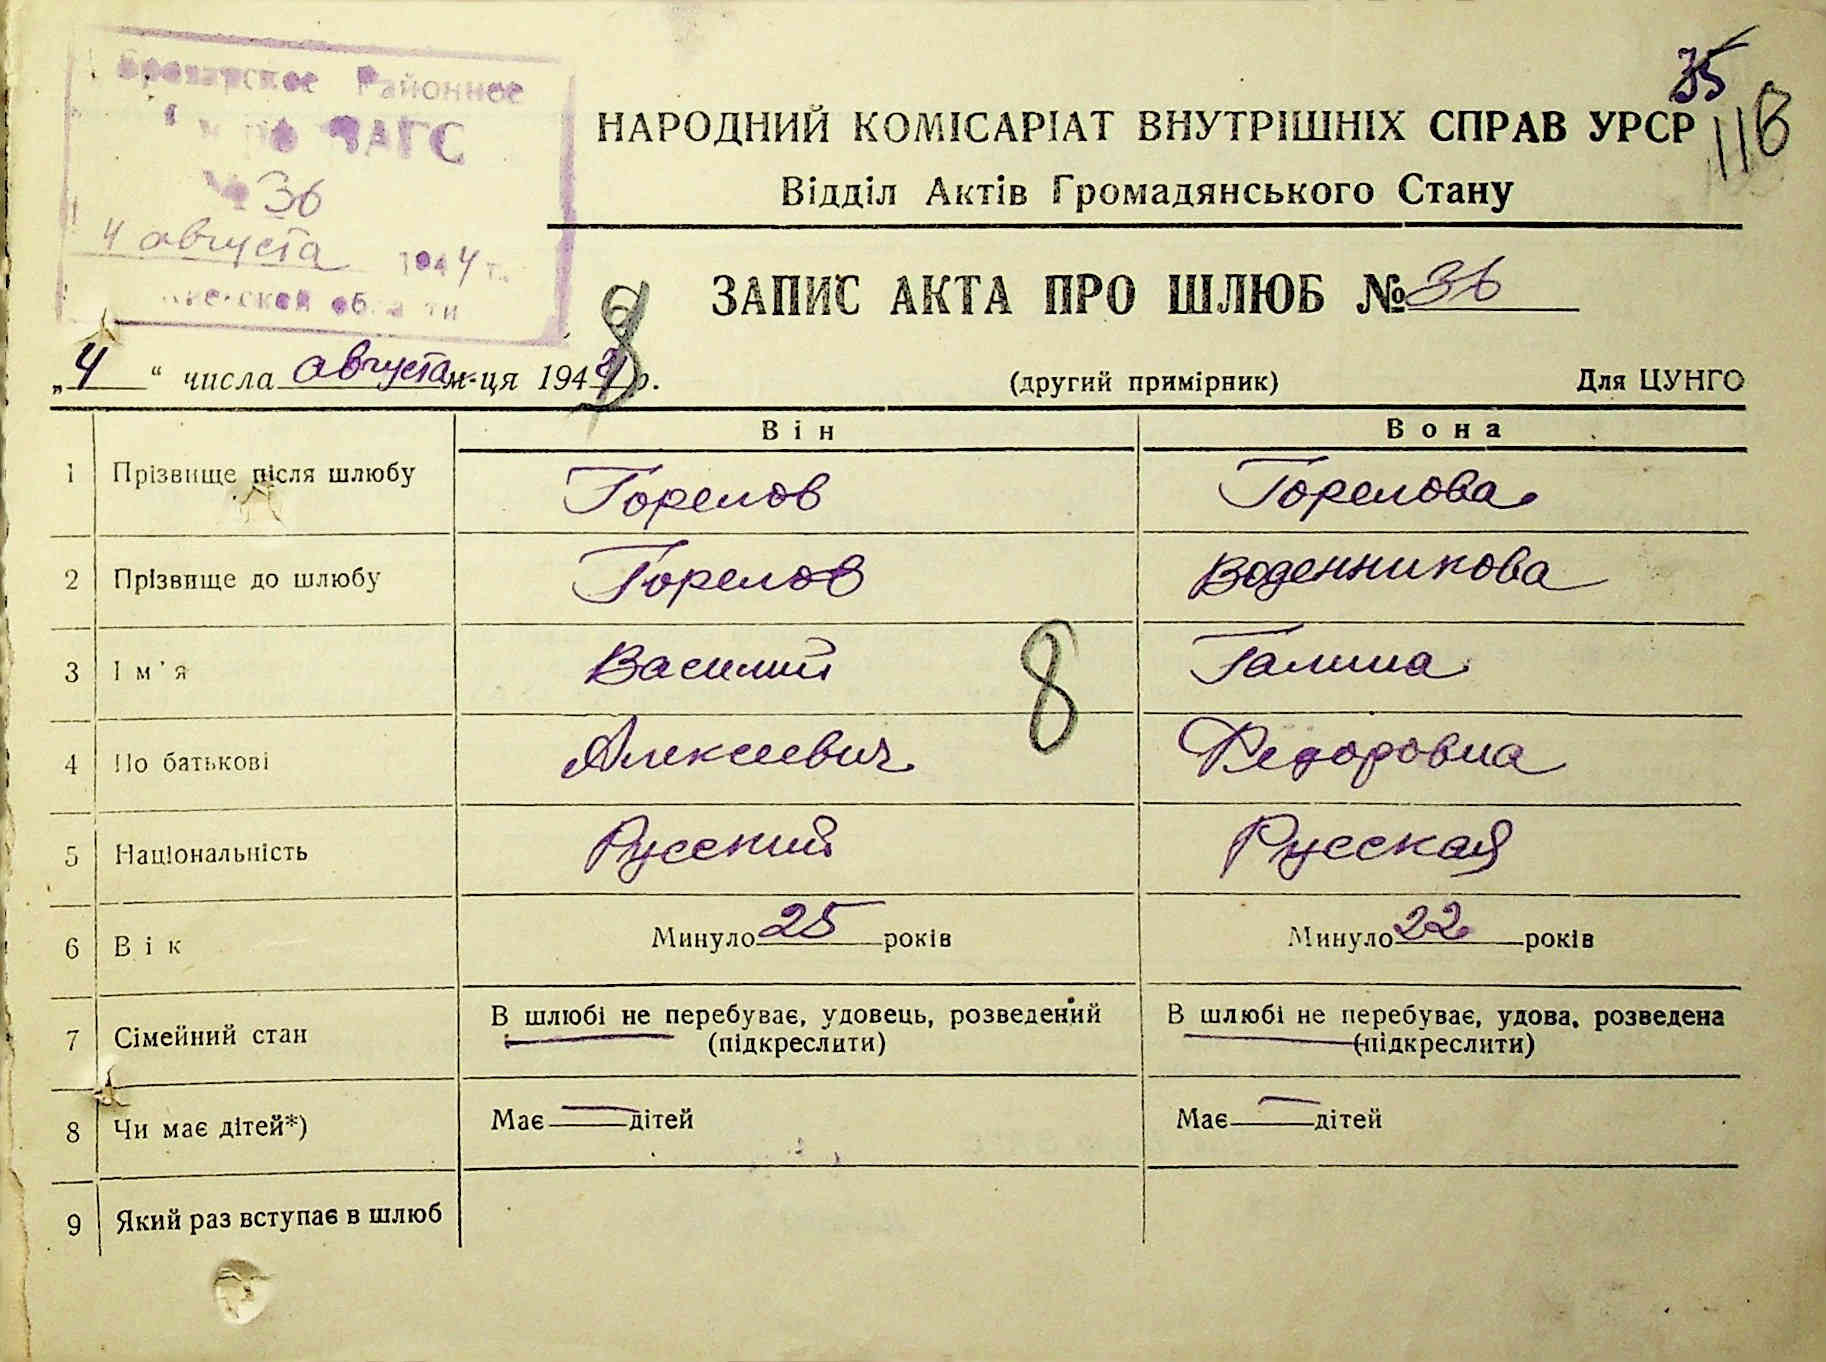 Броварское Районное
ЗАГС
№ 36
4 августа 1944 г.
Киевской области
35
118
НАРОДНИЙ КОМІСАРІАТ ВНУТРІШНІХ СПРАВ УРСР
Відділ Актів Громадянського Стану
ЗАПИС АКТА ПРО ШЛЮБ № 36
8
„4“ числа августа м-ця 1944 р. (другий примірник) Для ЦУНГО
Він Вона
1 Прізвище після шлюбу Горелов Горелова
2 Прізвище до шлюбу Горелов Воденникова
3 Ім'я Василий Галина
8
4 По батькові Алексеевич Федоровна
5 Національність Русский Русская
6 Вік Минуло 25 років Минуло 22 років
7 Сімейний стан В шлюбі не перебуває, удовець, розведений В шлюбі не перебуває, удова, розведена
(підкреслити) (підкреслити)
8 Чи має дітей*) Має — дітей Має — дітей
9 Який раз вступає в шлюб